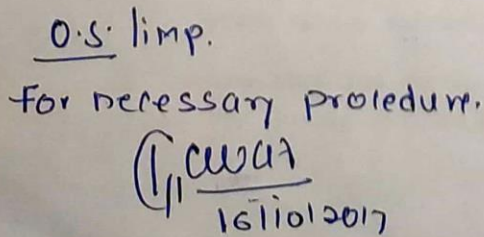 O.S. limp.
For necessary proledure.
16/10/2017